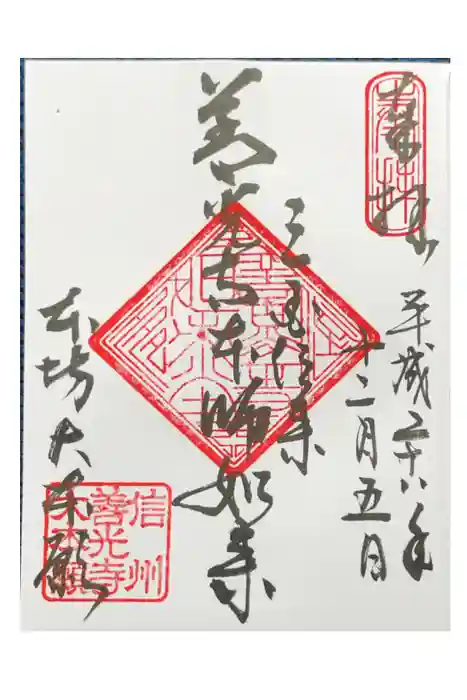 奉拝
奉拝
平成二十八年
十二月五日
三国伝来
善光寺本師如来
本坊大本願
信州
善光寺
大本願